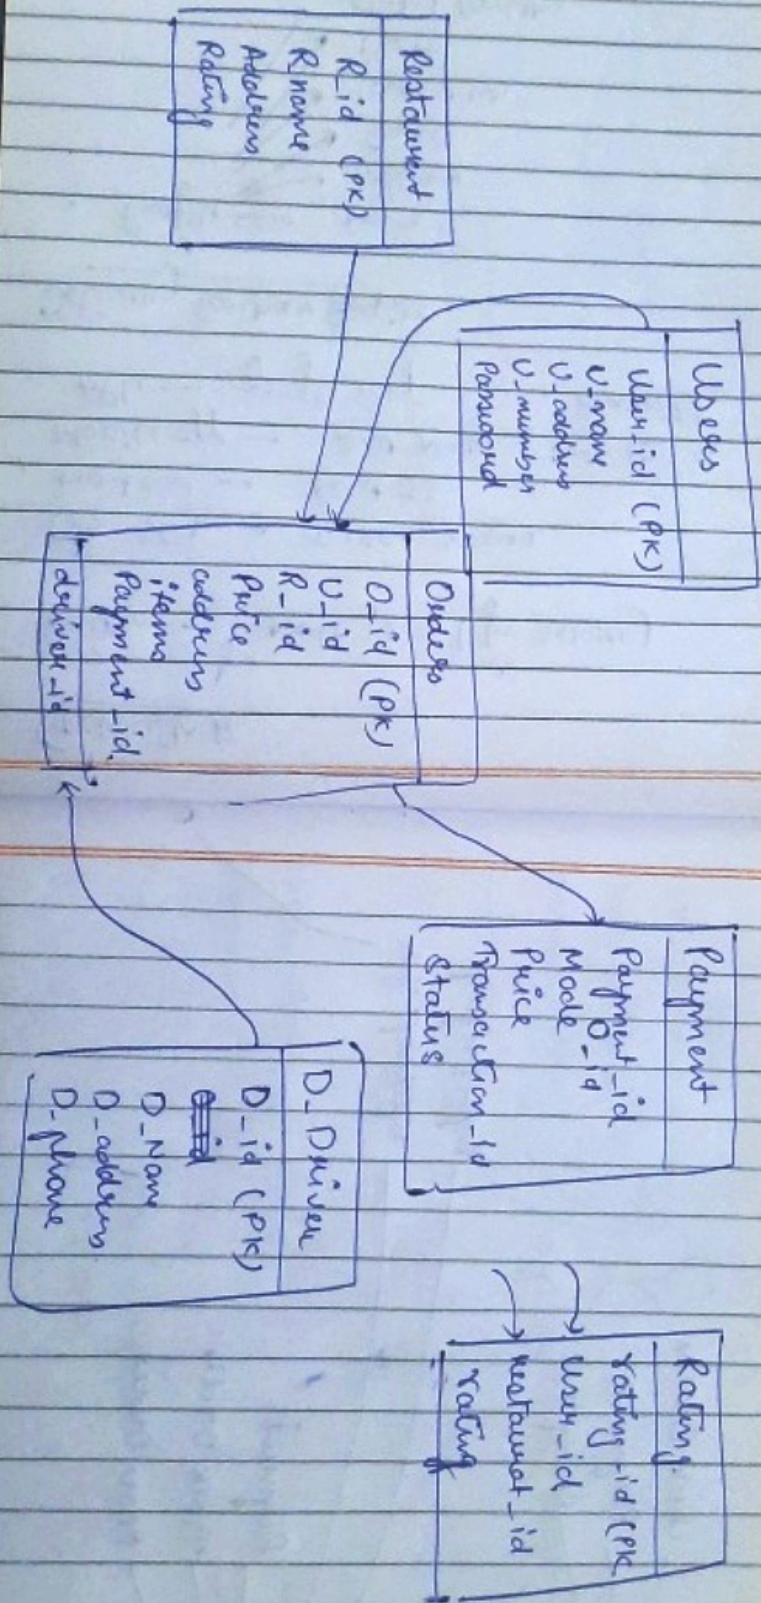 Restaurent
R_id (PK)
R_name
Address
Rating
Users
User_id (PK)
U_name
U_address
U_number
Password
Orders
O_id (PK)
U_id
R_id
Price
address
items
Payment_id
driver_id
Payment
Payment_id
O_id
Mode
Price
Transaction_id
Status
D_Driver
D_id (PK)
D_Name
D_address
D_phone
Rating
rating_id (PK
User_id
restaurat_id
rating